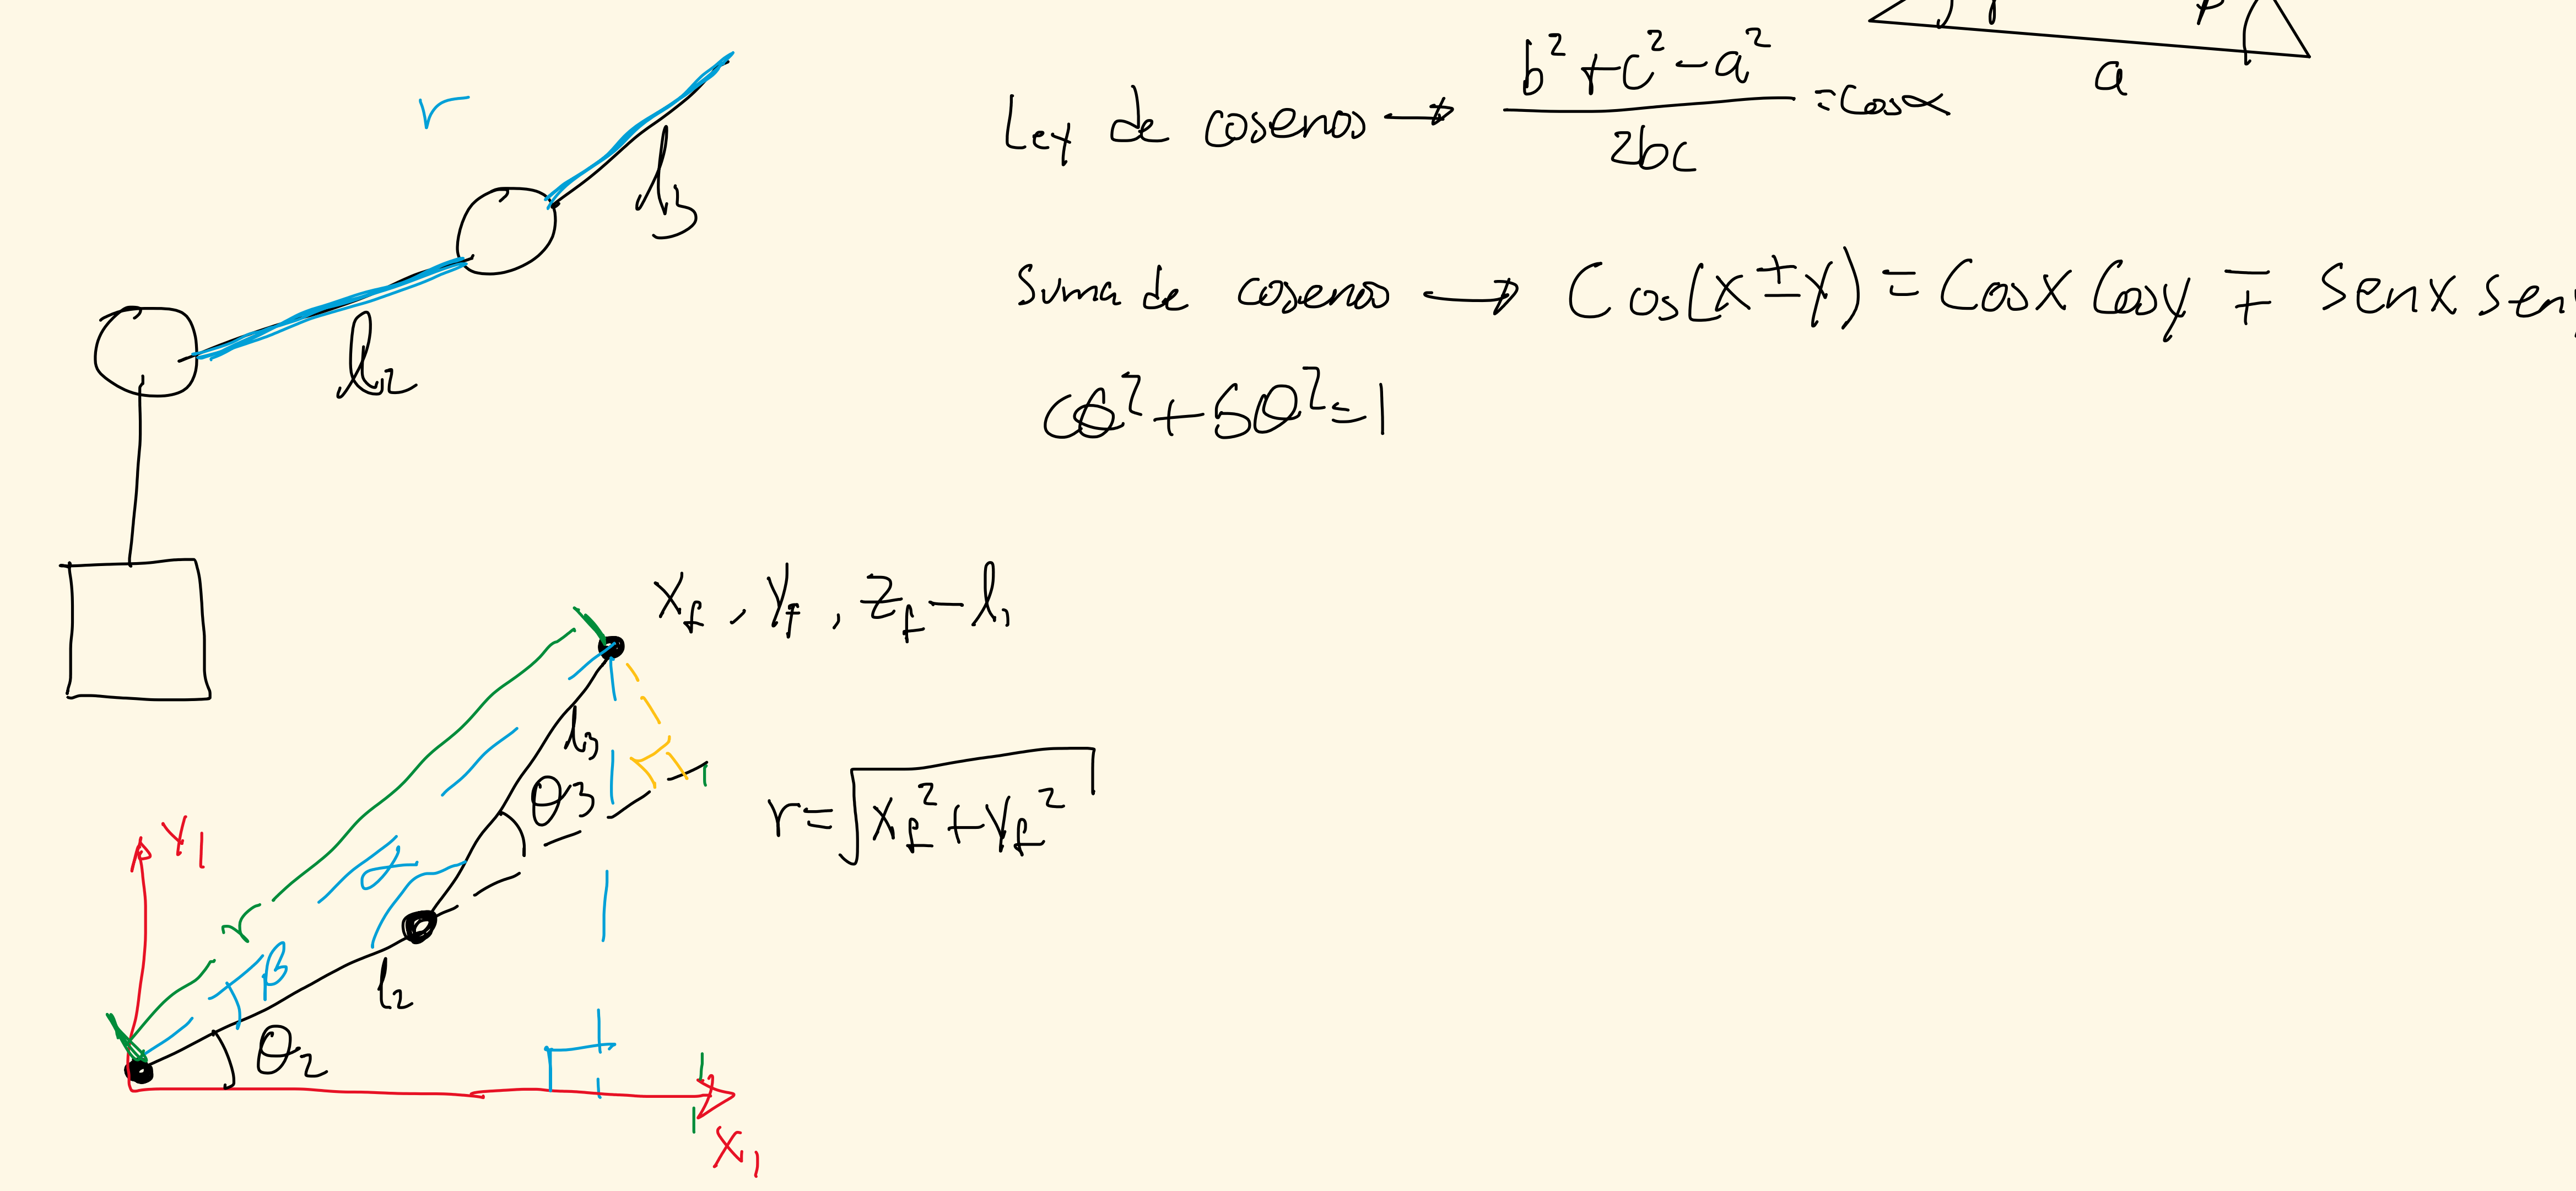 a
r
l3
Ley de cosenos → (b² + c² - a²) / 2bc = cosα
l2
Suma de cosenos → Cos(x ± y) = Cosx Cosy ∓ senx sen
cθ² + sθ² = 1
xf, yf, zf - l1
l3
θ3
r = √(xf² + yf²)
Y1
α
r
β
l2
θ2
X1